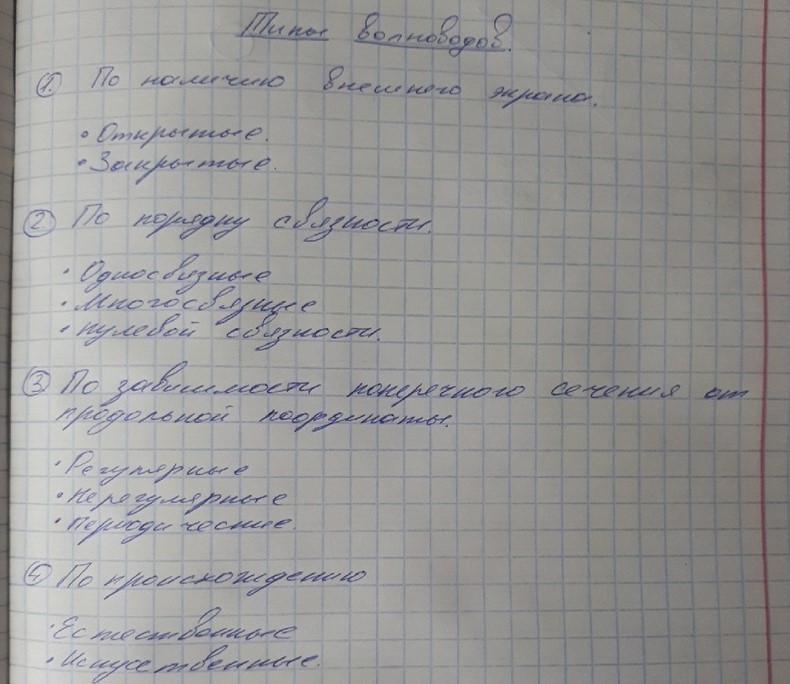 Типы волноводов.
1. По наличию внешнего экрана.
• Открытые.
• Закрытые.
2. По порядку связности.
• Односвязные
• Многосвязные
• Нулевой связности.
3 По зависимости поперечного сечения от
продольной координаты.
• Регулярные
• Нерегулярные
• Периодические.
4 По происхождению
• Естественные
• Искуственные.